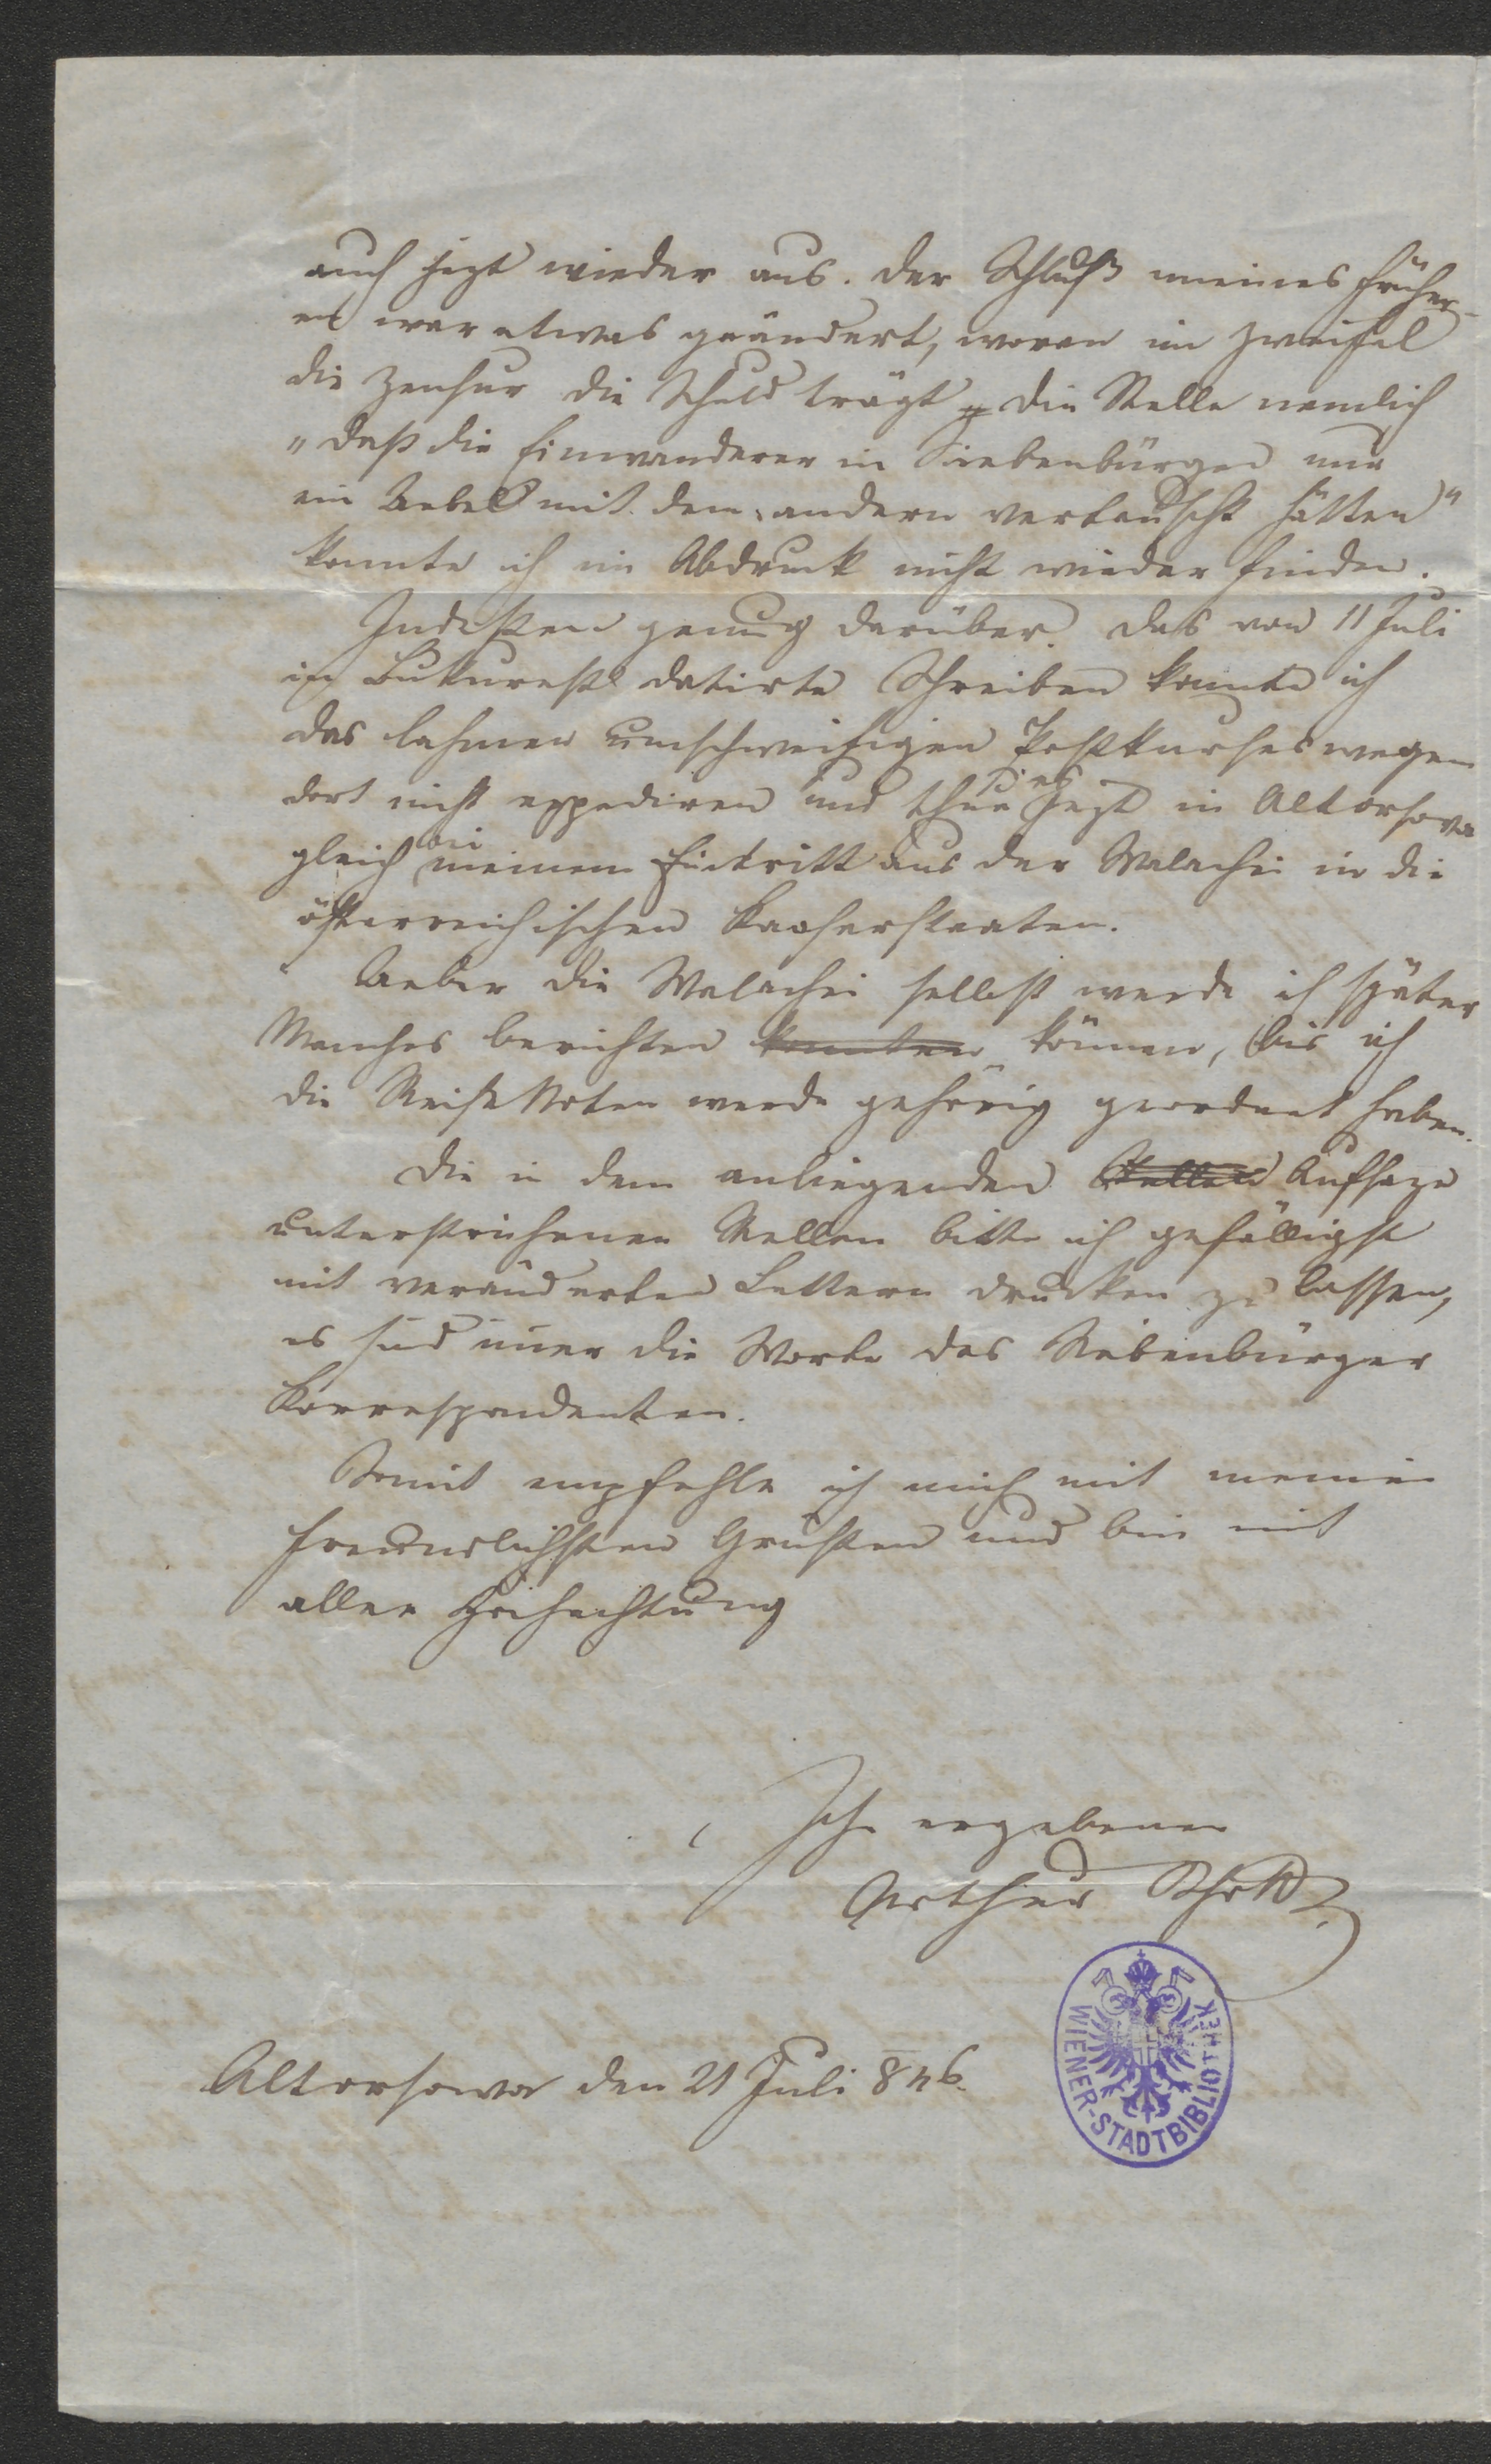 auch jezt wieder aus. Der Schluß meines früher-
en war etwas geändert, woran im Zweifel
die Zensur die Schuld trägt die Stelle nemlich
„daß die Einwanderer in Siebenbürgen nur
ein Uebel mit dem andern vertauscht hätten“
konnte ich im Abdruck nicht wieder finden.
Indessen genug darüber. Das von 11 Juli
in Bukurest datirte Schreiben konnte ich
des lahmen umschweifigen Postkurses wegen
dort nicht expediren und thue es jezt in Altorsova
gleich bei meinem Eintritt aus der Walachei in die
österreichischen Kaiserstaaten.
Ueber die Walachei selbst werde ich später
Manches berichten konnten können, bis ich
die Reise Noten werde gehörig geordnet haben.
Die in dem anliegenden Stellen Aufsaze
unterstrichenen Stellen bitte ich gefälligst
mit veränderten Lettern drucken zu lassen,
es sind immer die Worte des Siebenbürger
Korrespondenten.
Somit empfehle ich mich mit meinen
freundlichsten Grüßen und bin mit
aller Hochachtung
Ihr ergebener
Arthur Schott
Altorsowa den 21 Juli 846.
WIENER-STADTBIBLIOTHEK